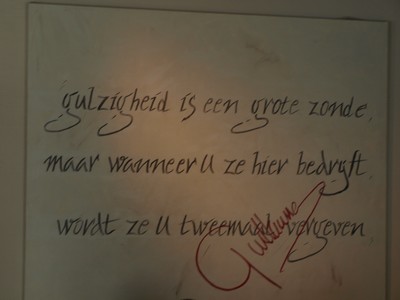 gulzigheid is een grote zonde,
maar wanneer U ze hier bedrijft,
wordt ze U tweemaal vergeven